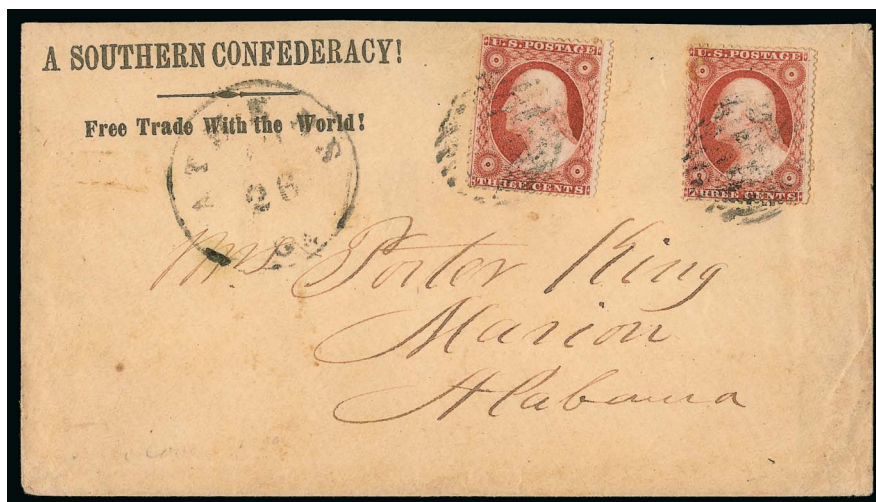 A SOUTHERN CONFEDERACY!
Free Trade With the World!
ATHENS
26
U.S. POSTAGE
THREE CENTS
U.S. POSTAGE
THREE CENTS
Mrs. Porter King
Marion
Alabama